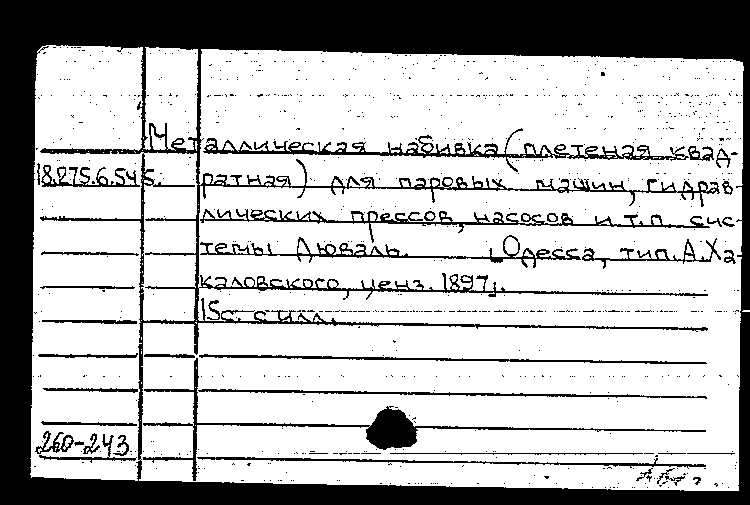 Металлическая набивка (плетеная квад-
18.275.6.545. ратная) для паровых машин, гидрав-
лических прессов, насосов и.т.п. сис-
темы Дюваль. [Одесса, тип. А. Ха-
каловского, ценз. 1897].
15с. с илл.
260-243